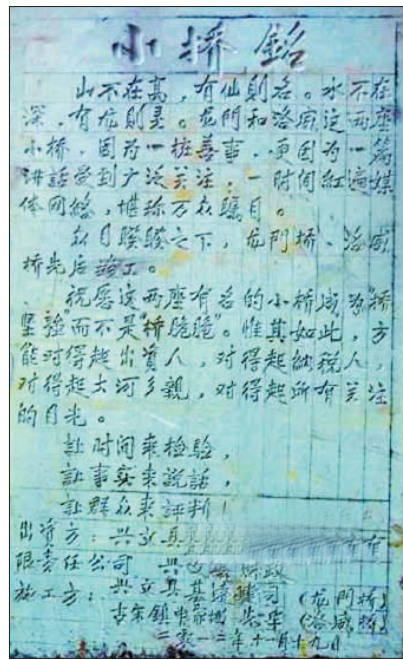 小桥铭
山不在高，有仙则名。水不在
深，有龙则灵。龙門和洛威这两座
小桥，因为一桩善事，更因为一篇
讲話受到广泛关注，一时间紅遍媒
体网络，堪称万众瞩目。
众目睽睽之下，龙門桥、洛威
桥先后竣工。
祝愿这两座有名的小桥成为"桥
坚强"而不是"桥脆脆"。惟其如此，方
能对得起出資人，对得起納税人，
对得起土河乡親，对得起所有关注
的目光。
让时间来检验，
让事实来說話，
让群众来評判！
出资方：兴文县
限责任公司 兴文县财政
施工方：兴文县 公司（龙門桥）
古宋鎮 （洛威桥）
二零一二年十一月十九日